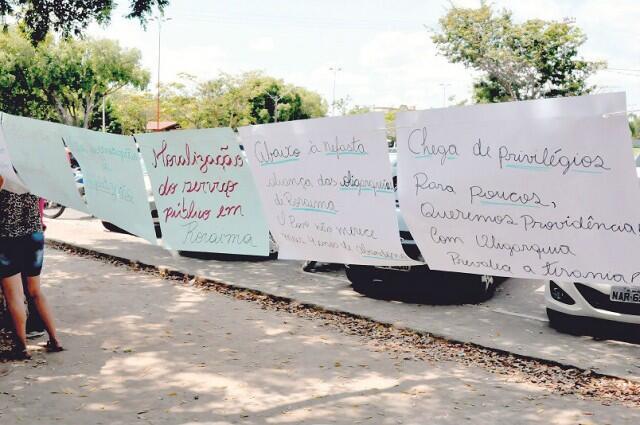 Moralização
do serviço
público em
Roraima
Abaixo à nefasta
aliança das oligarquias
de Roraima.
O Povo não merece
mais 4 anos de
Chega de privilégios
Para Poucos,
Queremos Providência
Com Oligarquia
Prevalia a tirania
NAR